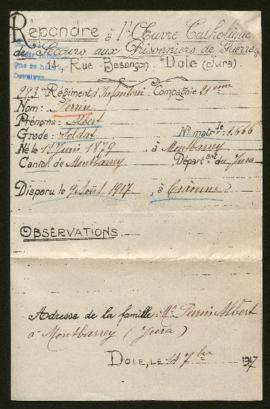 Répondre à l'Œuvre Catholique
de Secours aux Prisonniers de Guerre
14 Rue Besançon Dole (Jura)
223e Régiment d'Infanterie Compagnie 21eme
Nom: Perrin
Prénoms: Albert
Grade: Soldat No matrle 1.666
Né le 1er Juin 1879 à Montbarrey
Canton de Montbarrey Départ ent du Jura
Disparu le 9 Août 1917, à
OBSERVATIONS
Adresse de la famille Mr Perrin Albert
à Montbarrey (Jura)
DOLE, LE 7bre 1917